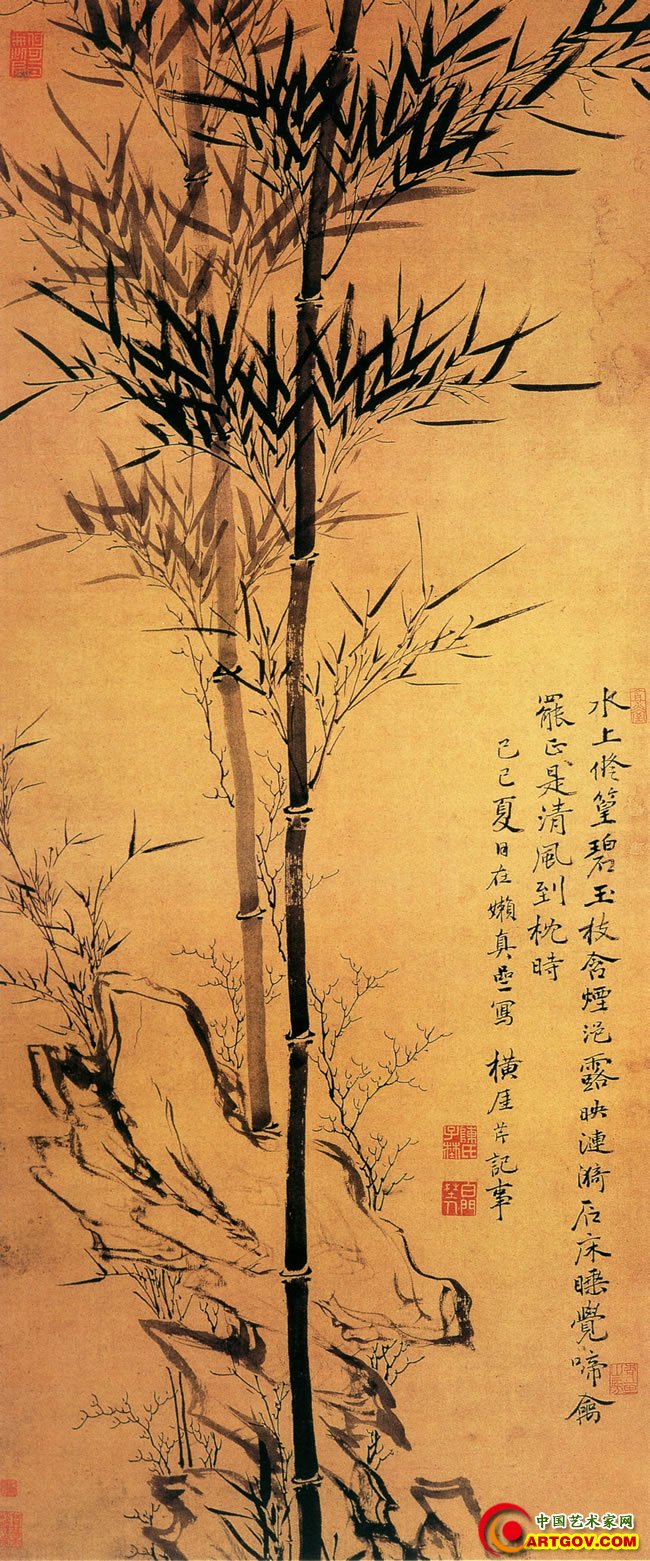 水上脩篁碧玉枝含煙浥露映漣漪石床睡覺啼禽
罷正是清風到枕時
己巳夏日在嬾真亝寫 橫厓芹記事
中国艺术家网
ARTGOV.COM